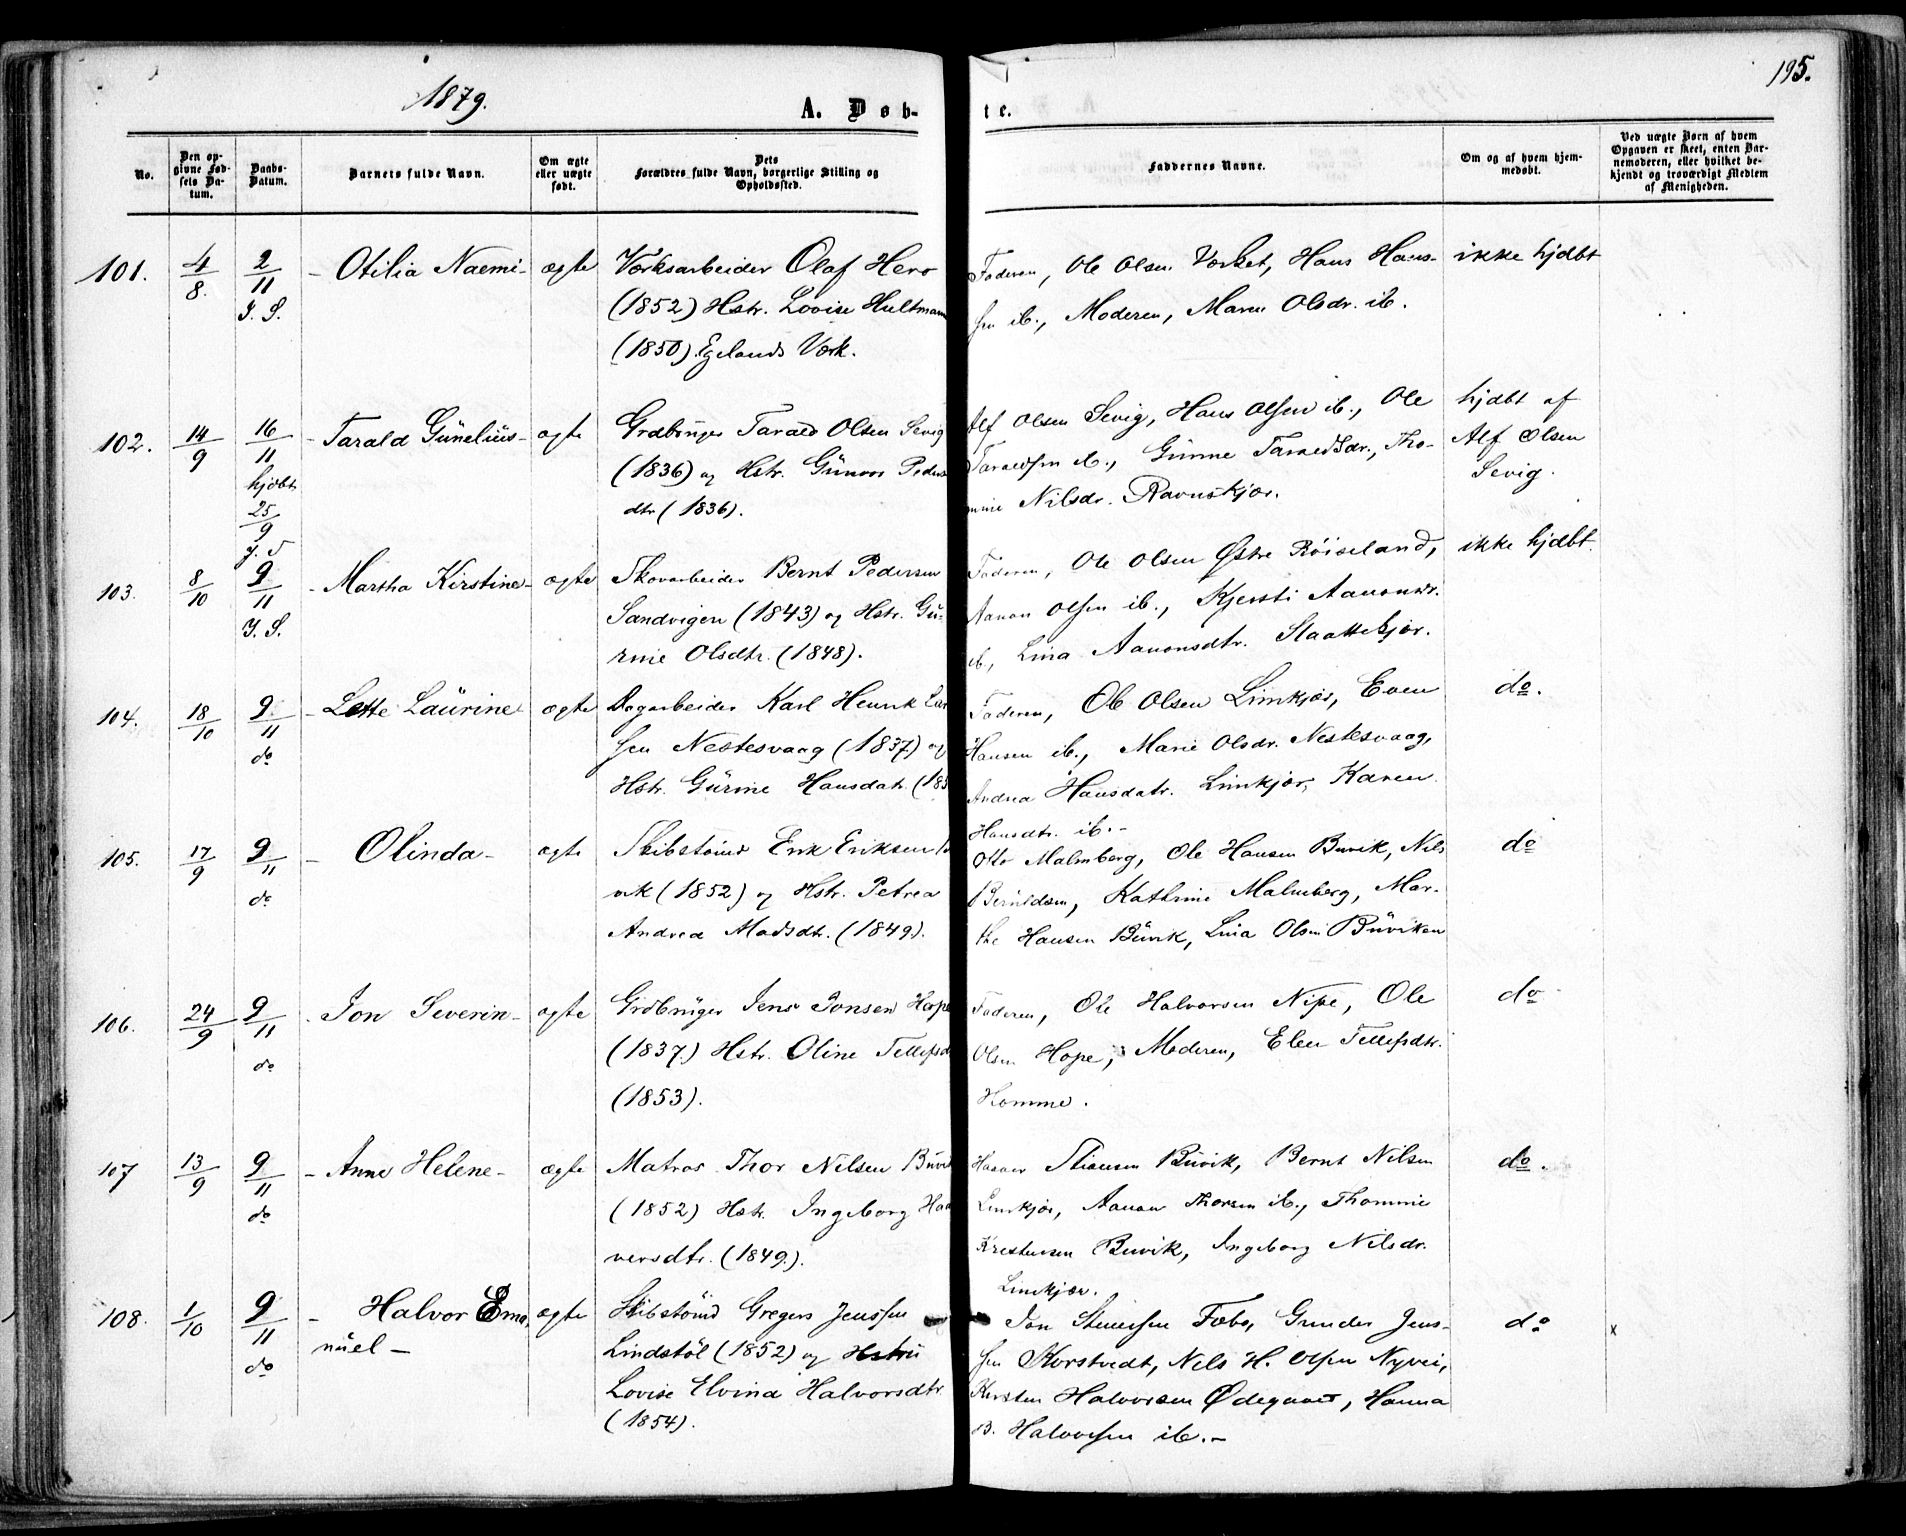 1879.
195.
A. Døb-
te.
No.
Den op-
givne Fød-
sels Da-
tum.
Daabs-
Datum.
Barnets fulde Navn.
Om ægte
eller uægte
født.
Dets
Forældres fulde Navn, borgerlige Stilling og
Opholdssted.
Faddernes Navne.
Om og af hvem hjem-
medøbt.
Ved uægte Børn af hvem
Opgaven er skeet, enten Bar-
nemoderen, eller hvilket be-
kjendt og troværdigt Medlem
af Menigheden.
101. 4/8. 2/11 J. S. – Otilia Naemi- ægte
Værksarbeider Olaf Hero
(1852) Hstr. Lovise Hultmann
(1850). Egelands Værk.
Faderen, Ole Olsen Værket, Hans Han-
sen ib., Moderen, Maren Olsdr. ib.
ikke hjdbt
102. 14/9 16/11 hjdbt 25/9 J. S - Tarald Günelius- ægte
Grdbruger Tarald Olsen Sevig
(1836) og Hstr. Gunvor Peders
dtr (1836).
Alf Olsen Sevig, Hans Olsen ib., Ole
Taraldsen ib., Günne Taraldsdr., Tho-
mine Nilsdr. Ravnskjær.
hjdbt af
Alf Olsen
Sevig.
103. 8/10 9/11 J. S. - Martha Kirstine- ægte
Skovarbeider Bernt Pedersen
Sandvigen (1843) og Hstr. Gu-
rine Olsdtr. (1848).
Faderen, Ole Olsen Østre Røiseland,
Aanon Olsen ib., Kjersti Aanonsdr.
ib, Lina Aanonsdtr. Slaattekjær.
ikke hjdbt.
104. 18/10 9/11 do - Lette Laurine ægte
Dagarbeider Karl Henrik Lar
sen Nestesvaag (1837) og
Hstr. Gürine Hansdatr. (185
Faderen, Ole Olsen Limkjær, Even
Hansen ib., Marie Olsdr. Nestesvaag,
Andrea Hansdatr. Limkjær, Karen
Hansdtr. ib.-
do.
105. 17/9 9/11 do – Olinda- ægte
Skibstømd Erik Eriksen Bu
vik (1852) og Hstr. Petrea
Andrea Madsdt. (1849).
Otto Malmberg, Ole Hansen Buvik, Nils
Berntdsen, Kathrine Malmberg, Mar-
the Hansen Buvik, Lina Olsen Buviken
do
106. 24/9 9/11 do - Jon Severin- ægte
Grdbruger Jens Jonsen Hope
(1837) Hstr. Oline Tellefsd
(1853).
Faderen, Ole Halvorsen Nipe, Ole
Olsen Hope, Moderen, Elen Tellefsdtr.
Homme.
do
107 13/9 9/11 do - Anne Helene- ægte
Matros Thor Nilsen Buvik
(1852) Hstr. Ingeborg Haa
versdtr. (1849.).
Haaver Stiansen Buvik, Bernt Nilsen
Limkjær, Aanon Thorsen ib., Thomine
Kristensen Buvik, Ingeborg Nilsdr.
Limkjær.
do.
108. 1/10 9/11 do - Halvor Ema-
nuel –
ægte
Skibstømd Gregers Jenssen
Lindstøl (1852) og Hstru
Lovise Elvina Halvorsdtr.
(1854).
Jon Stenersen Fobe, Gunder Jens-
sen Korstvedt, Nels H. Olsen Nyvei,
Kirsten Halvorsen Ødegaard, Hanna
B. Halvorsen ib.-
do
x